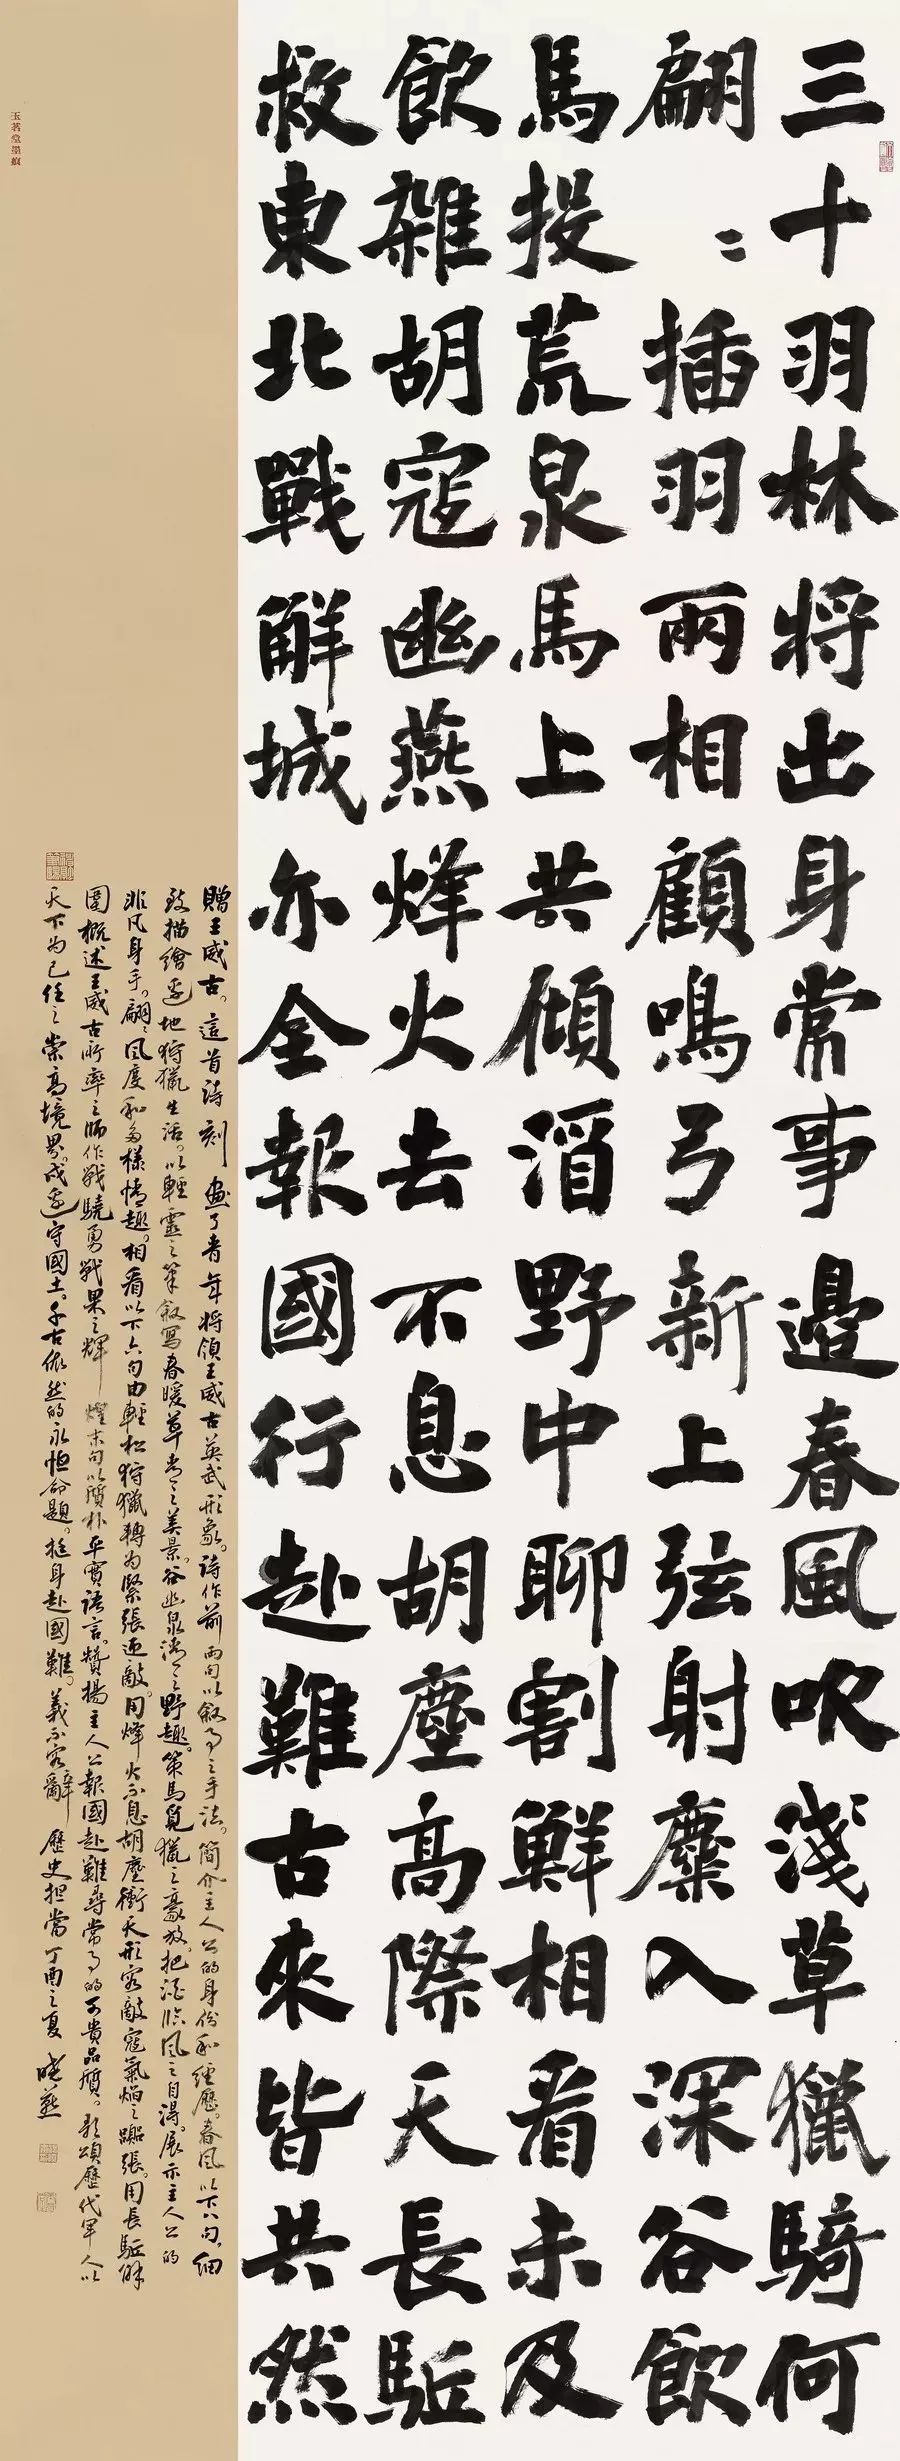 三十羽林將出身常事邊春風吹淺草獵騎何
翩〻插羽兩相顧鳴弓新上弦射麋入深谷飲
馬投荒泉馬上共傾酒野中聊割鮮相看未及
飲雜胡寇幽燕烽火去不息胡塵高際天長駈
救東北戰解城亦全報國行赴難古來皆共然
贈王威古。這首詩刻畫了青年将領王威古英武形象。詩作前兩句以叙事之手法。簡介主人公的身份和經歷。春風以下八句，細
致描繪邊地狩獵生活。以輕靈之筆叙寫春暖草青之美景。谷幽泉清之野趣。策馬覓獵之豪放。把酒临風之自得。展示主人公的
非凡身手。翩〻風度和多樣情趣。相看以下六句由輕松狩獵轉为緊張迎敵。用烽火不息胡塵衝天形容敵寇氣焰之嚣張。用長駈解
圍概述王威古所率之師作戰驍勇戰果之輝煌末句以質朴平實語言。贊揚主人公報國赴難尋常事的可貴品質。歌頌歷代軍人以
天下为己任之崇高境界。戍邊守國土。千古依然的永恒命題。挺身赴國難。義不容辭歷史担當丁酉之夏 曉燕
玉茗堂墨痕